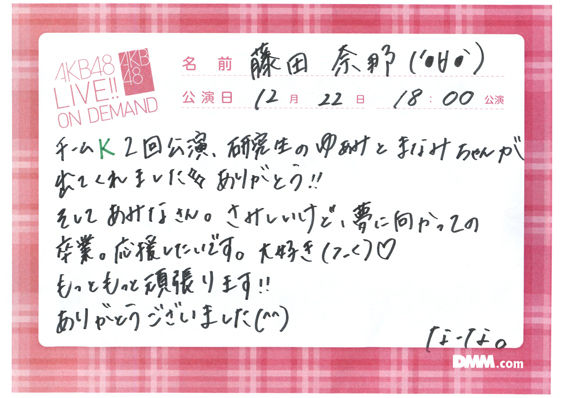 AKB48
LIVE!!
ON DEMAND
AKB
48
名前 藤田 奈那('●∀●')
公演日 12月22日 18:00公演
チームK 2回公演、研究生のゆあみとまなみちゃんが
出てくれました ありがとう!!
そしてあみなさん。さみしいけど、夢に向かっての
卒業。応援したいです。大好き(>_<)♡
もっともっと頑張ります!!
ありがとうございました(^^)
なーな。
DMM.com